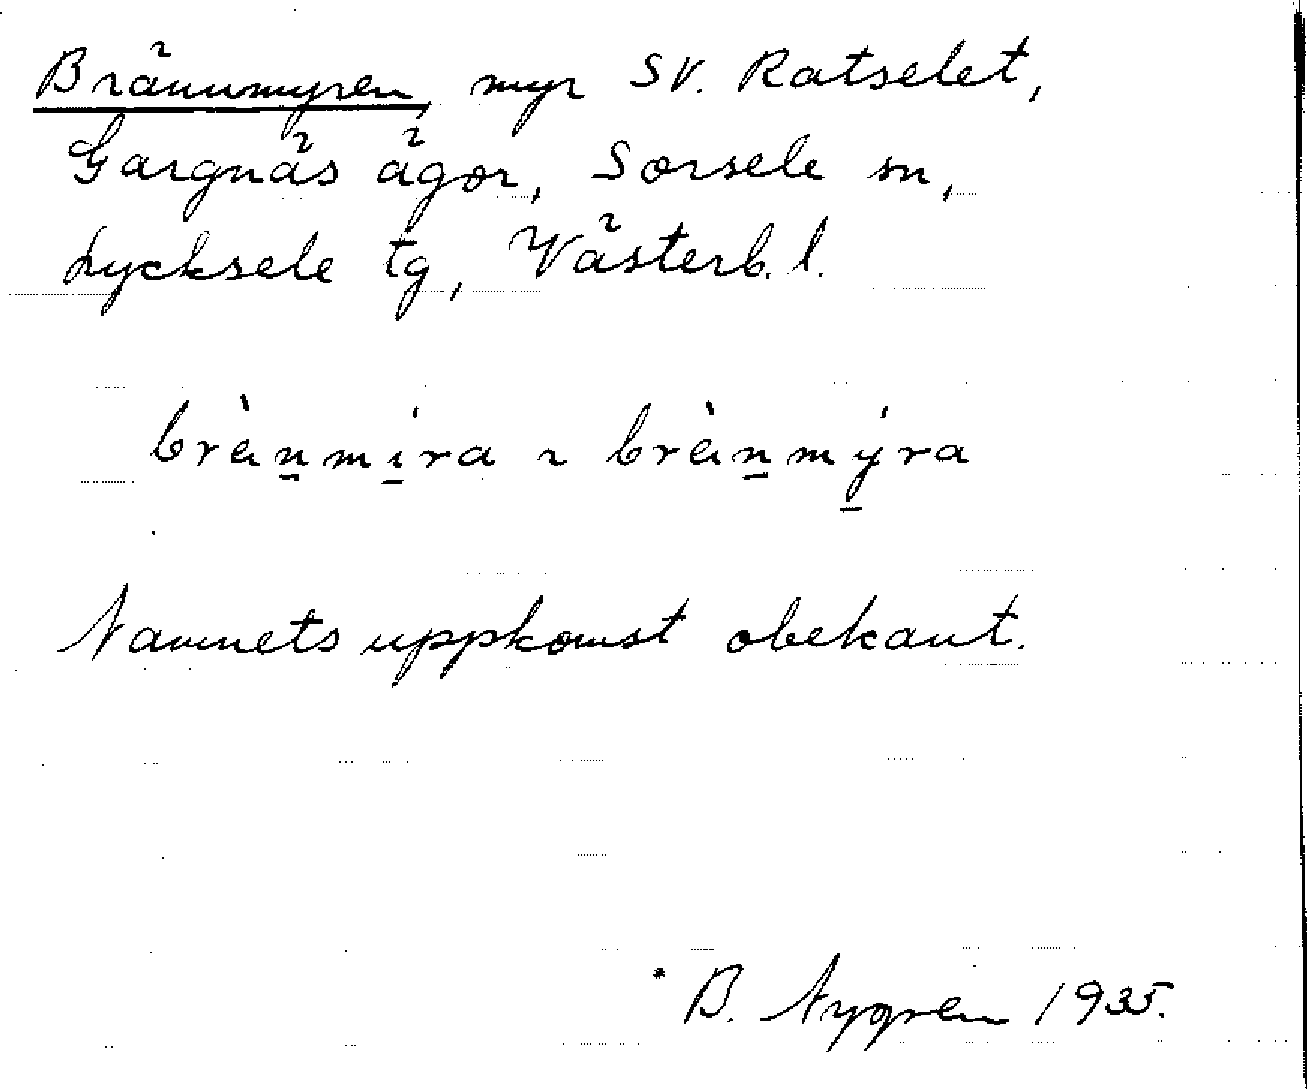 Brännmyren, myr SV. Ratselet,
Gargnäs ägor, Sorsele sn,
Lycksele tg, Västerb. l.
brèn̲mi̲ra ~ brèn̲mẏ̲ra
Namnets uppkomst obekant.
B. Nygren 1935.